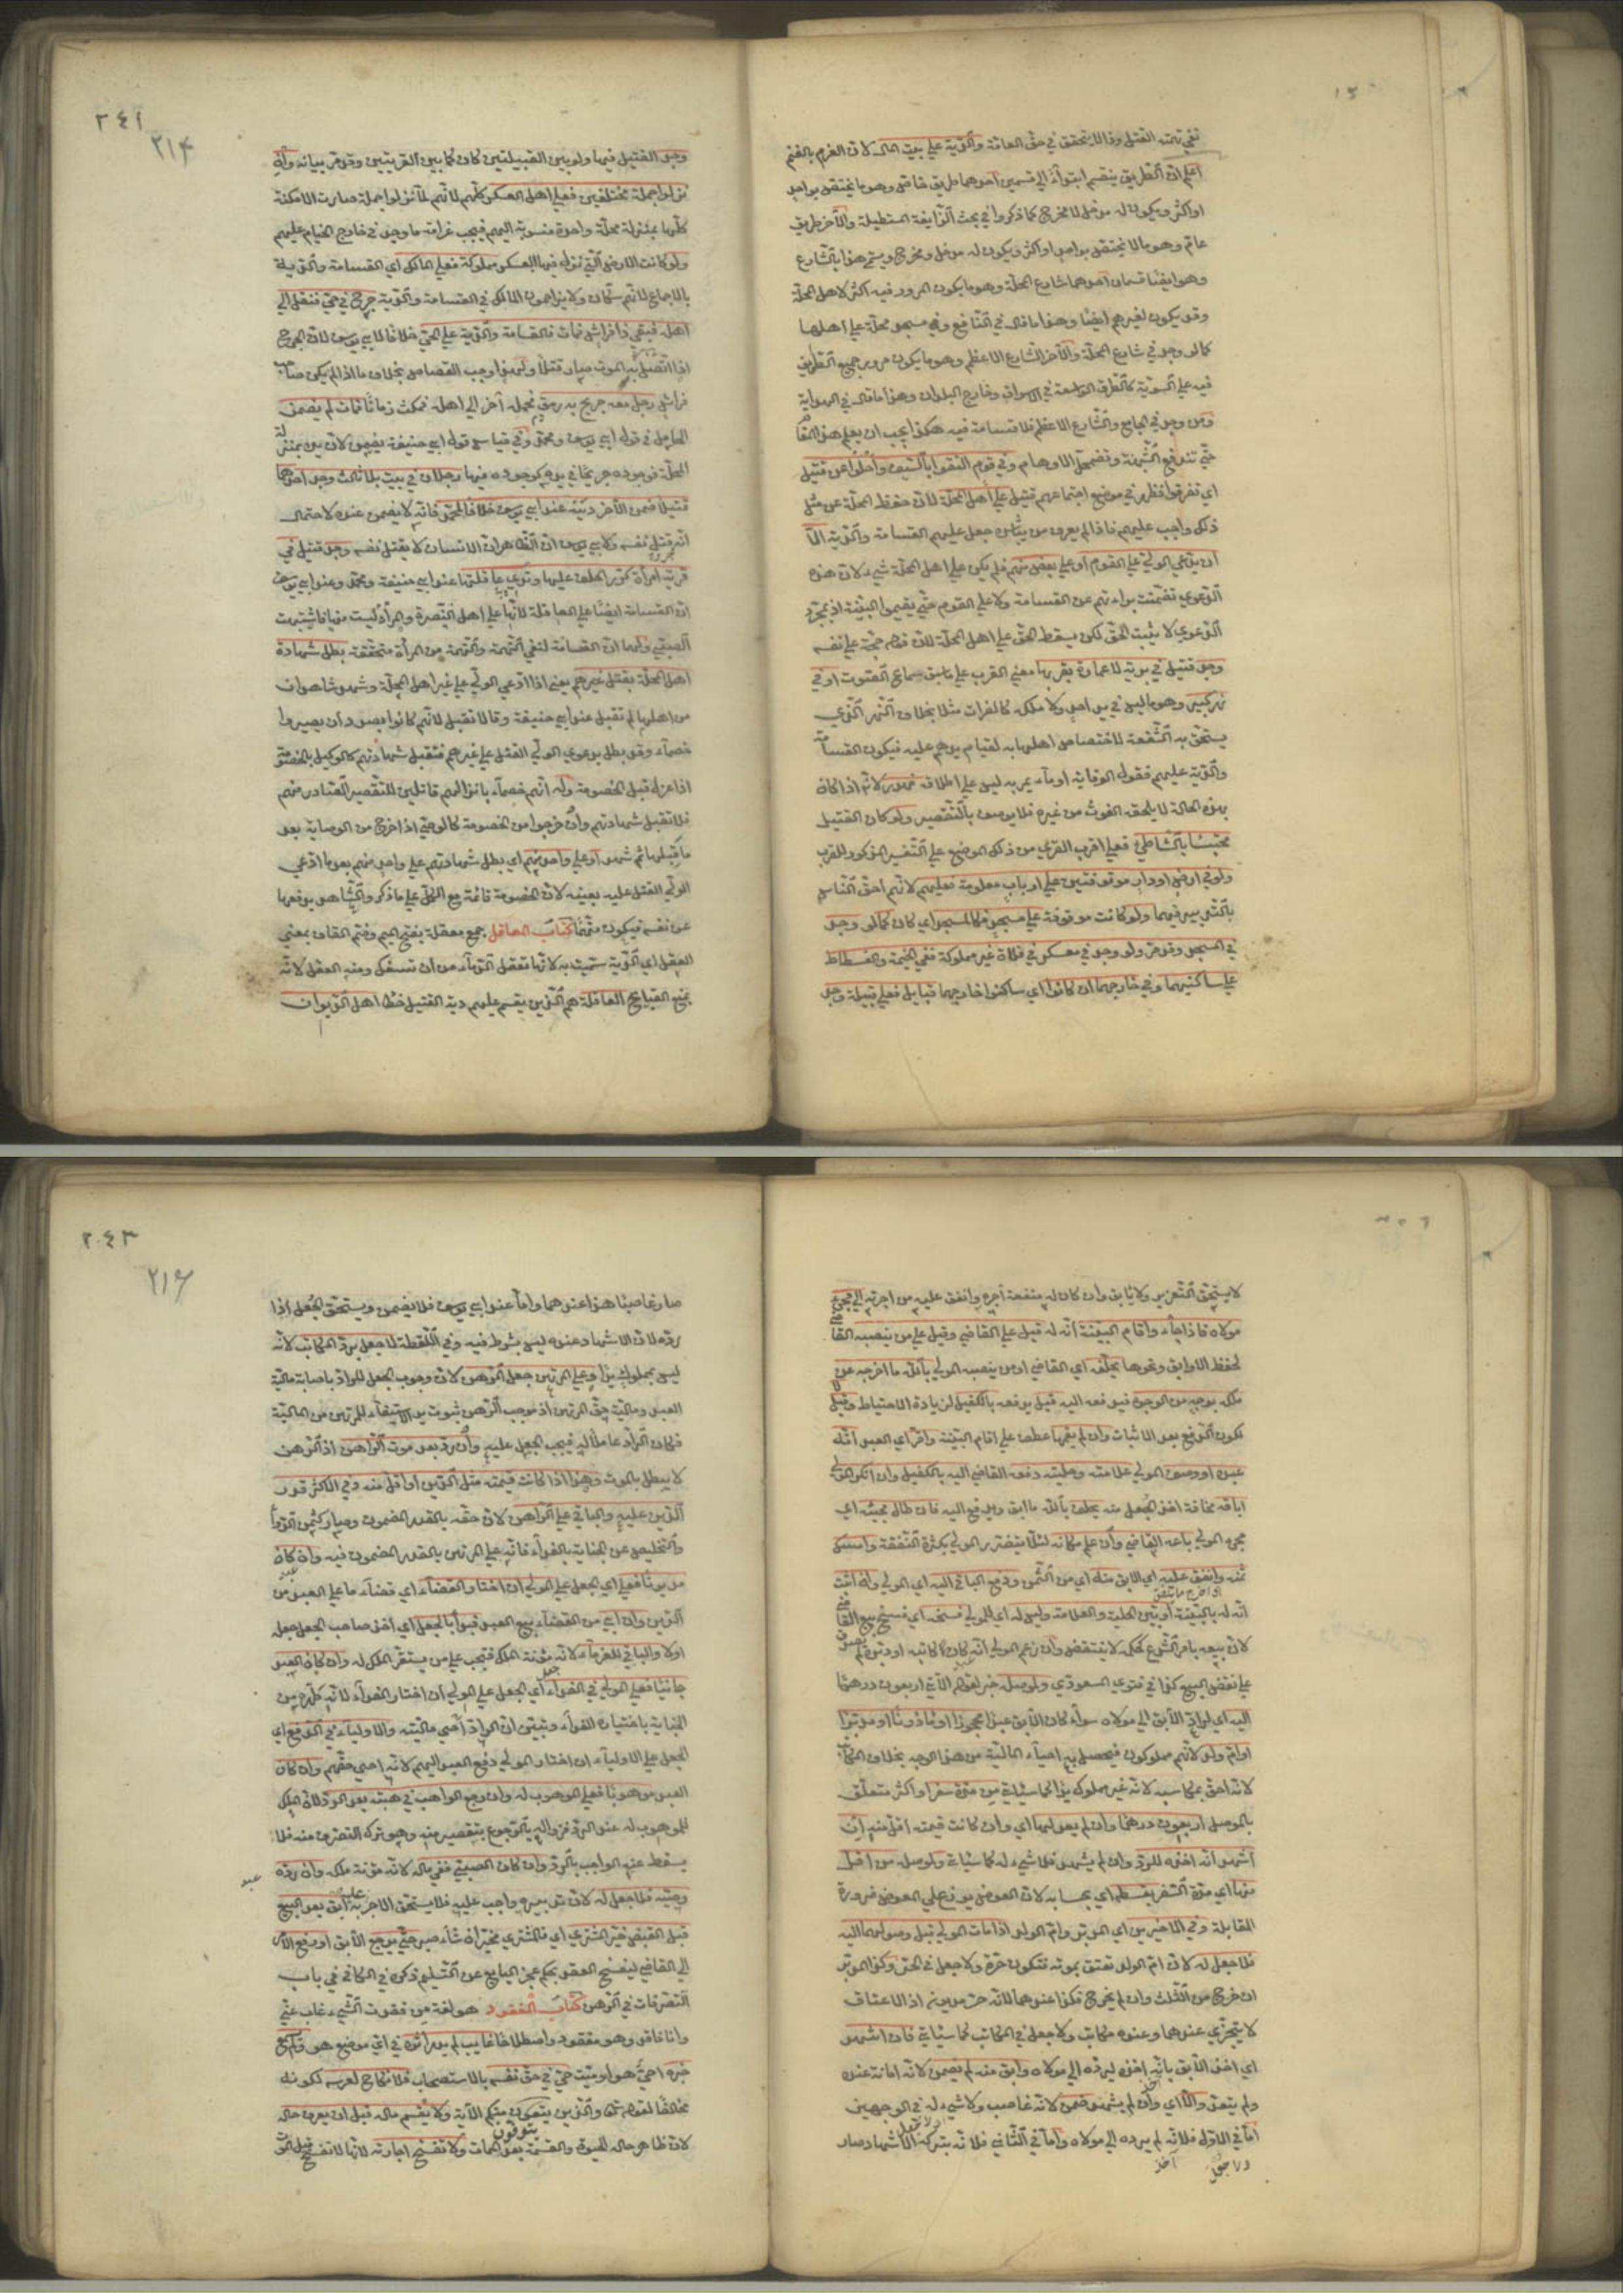 نفي تهمة القتل وذا لا يتحقق في حق العامة والدية على بيت المال لان الغرم بالغنم
اعلم ان الطريق ينقسم ابتداء الى قسمين احدهما طريق خاص وهو ما يختص بواحد
او اكثر ويكون له مدخل لا مخرج كما ذكروا في بحث الزايغة المستطيلة والآخر طريق
عام وهو ما لا يختص بواحد او اكثر ويكون له مدخل ومخرج ويسمى هذا بالشارع
وهو ايضا قسمان احدهما شارع المحلة وهو ما يكون المرور فيه اكثر لاهل المحلة
وقد يكون لغيرهم ايضا وهذا ما قال في النافع وفي مسجد محلة على اهلها
كما لو وجد في شارع المحلة والآخر الشارع الاعظم وهو ما يكون مرور جميع الطرايق
فيه على السوية كالطرق الواسعة في الاسواق وخارج البلدان وهذا ما قال في الهداية
ومن وجد في الجامع والشارع الاعظم فلا قسامة فيه هكذا يجب ان يعلم هذا المقام
حتى تندفع الشبهة وتضمحل الاوهام وفي قوم التقوا بالسيف واجلوا عن قتيل
اي تفرقوا فظهر في موضع اجتماعهم قتيل على اهل المحلة لان حفظ المحلة عن مثل
ذلك واجب عليهم فاذا لم يعرف من يباشر جعل عليهم القسامة والدية الا
ان يدعي الولي على القوم او على بعض منهم فلم يكن على اهل المحلة شيء لان هذه
الدعوى تضمنت براءتهم عن القسامة ولا على القوم حتى يقيموا البينة اذ بمجرد
الدعوى لا يثبت الحق لكن يسقط الحق على اهل المحلة لان قوله حجة على نفسه
وجد قتيل في برية لا عمارة بقربها معنى القرب على ما سبق سماع الصوت او في
نهر كبير وهو ما ليس في يد احد ولا ملكه كالفرات مثلا بخلاف النهر الذي
يستحق به الشفعة لاختصاص اهلها به لقيام يدهم عليه فيكون القسامة
والدية عليهم فقول الوقاية او ماء يمر به ليس على اطلاقه هدر لانه اذا كان
بهذه الحالة لا يلحقه الغوث من غيره فلا يوصف بالتقصير ولو كان القتيل
محتبسا بالشاطئ فعلى اقرب القرى من ذلك الموضع على التفسير المذكور للقرب
ولو في ارض او دار موقوفتين على ارباب معلومة فعليهم لانهم احق الناس
بالتدبير فيهما ولو كانت موقوفة على مسجد فكالمسجد اي كان كما لو وجد
في المسجد وقد مر ولو وجد في معسكر في فلاة غير مملوكة ففي الخيمة والفسطاط
على ساكنيهما وفي خارجهما ان كانوا اي ساكنوا خارجهما قبايل فعلى قبيلة وجد
٢٤١
٢١٤
وجد القتيل فيها ولو بين القبيلتين كان كما بين القريتين وقد مر بيانه وان
نزلوا جملة مختلطين فعلى اهل العسكر كلهم لانهم لما نزلوا جملة صارت الامكنة
كلها بمنزلة محلة واحدة منسوبة اليهم فيجب غرامة ما وجد في خارج الخيام عليهم
ولو كانت الارض التي نزلوا فيها العسكر مملوكة فعلى المالك اي القسامة والدية
بالاجماع لانهم سكان ولا يزاحمون المالك في القسامة والدية جرح في حي فنقل الى
اهله فبقي ذا فراش فمات فالقسامة والدية على الحي خلافا لابي يوسف لان الجرح
اذا اتصل به الموت صار قتلا ولهذا وجب القصاص بخلاف ما اذا لم يكن صاحب
فراش رجل معه جريح به رمق فحمله آخر الى اهله فمكث زمانا فمات لم يضمن
الحامل في قول ابي يوسف ومحمد وفي قياس قول ابي حنيفة يضمن لان يده بمنزلة
المحلة فوجوده جريحا في يده كوجوده فيها رجلان في بيت بلا ثالث وجد احدهما
قتيلا ضمن الآخر ديته عند ابي يوسف خلافا لمحمد فانه لا يضمن عنده لاحتمال
انه قتل نفسه ولابي يوسف ان الظاهر ان الانسان لا يقتل نفسه وجد قتيل في
قرية امرأة كرر الحلف عليها وتدي عاقلتها عند ابي حنيفة ومحمد وعند ابي يوسف
ان القسامة ايضا على العاقلة لانها على اهل النصرة والمرأة ليست منها فاشبهت
الصبي ولهما ان القسامة لنفي التهمة والتهمة من المرأة متحققة بطل شهادة
اهل المحلة بقتل غيرهم يعني اذا ادعى الولي على غير اهل المحلة وشهد شاهدان
من اهلها لم تقبل عند ابي حنيفة وقالا تقبل لانهم كانوا بصدد ان يصيروا
خصماء وقد بطل بدعوى الولي القتل على غيرهم فتقبل شهادتهم كالوكيل بالخصومة
اذا عزل قبل الخصومة وله انهم خصماء بانزالهم قاتلين للتقصير الصادر منهم
فلا تقبل شهادتهم وان خرجوا من الخصومة كالوصي اذا خرج من الوصاية بعد
ما قبلها ثم شهد او على واحد منهم اي بطل شهادتهم على واحد منهم بعد ما ادعى
الولي القتل عليه بعينه لان الخصومة قائمة مع الكل على ما ذكر والشاهد يدفعها
عن نفسه فيكون متهما كتاب المعاقل جمع معقلة بفتح الميم وضم القاف بمعنى
العقل اي الدية سميت به لانها تعقل الدماء من ان تسفك ومنه العقل لانه
يمنع القبايح العاقلة هم الذين يقسم عليهم دية القتيل خطأ اهل الديوان
لا يستحق التعزير ولا يابق وان كان له منفعة آجره وانفق عليه من اجرته الى مجيء
مولاه فاذا جاء واقام البينة انه له قبل على القاضي وقيل على من ينصبه القاضي
لحفظ الاوابق ونحوها يحلفه اي القاضي او من ينصبه المولى بالله ما اخرجه عن
ملكه بوجه من الوجوه فيدفعه اليه قيل يدفعه بالكفيل لزيادة الاحتياط وقيل لا
لكون الدفع بعد الاثبات وان لم يقمها عطف على اقام البينة واقر اي العبد انه
عبده او وصف المولى علامته وحليته دفعه القاضي اليه بالكفيل وان انكر المولى
اباقه مخافة اخذ الجعل منه يحلف بالله ما ابق ويدفع اليه فان طال مجيئه اي
مجيء المولى باعه القاضي وان علم مكانه لئلا يتضرر المولى بكثرة النفقة وامسك
ثمنه وانفق عليه اي الآبق منه اي من الثمن ودفع الباقي اليه اي المولى وان اثبت
انه له بالبينة او بين الحلية والعلامة وليس له اي للمولى فسخه اي فسخ بيع القاضي
لان بيعه بامر الشرع كحكمه لا ينتقض وان زعم المولى انه كان كاتبه او دبره لم يصدق
على نقض البيع كذا في فتوى السعودي ولموصله خبر لقوله الآتي اربعون درهما
اليه اي لراد الآبق الى مولاه سواء كان الآبق عبدا محجورا او ماذونا او مدبرا
او ام ولد لانهم مملوكون فيحصل به احياء المالية من هذا الوجه بخلاف المكاتب
لانه احق بمكاسبه لانه غير مملوك يدا كما سيأتي من مدة سفر او اكثر متعلق
بالموصل اربعون درهما وان لم يعدلها اي وان كانت قيمته اقل منه ان
اشهد انه اخذه للرد وان لم يشهد فلا شيء له كما سيأتي ولموصله من اقل
منها اي مدة السفر بقسطه اي بحسابه لان العوض يوزع على المعوض ضرورة
المقابلة وفي الاخيرين اي المدبر وام الولد اذا مات المولى قبل وصولهما اليه
فلا جعل له لان ام الولد تعتق بموته فتكون حرة ولا جعل في الحر وكذا المدبر
ان خرج من الثلث وان لم يخرج فكذا عندهما لانه حر مديون اذ الاعتاق
لا يتجزى عندهما وعنده مكاتب ولا جعل في المكاتب كما سيأتي فان اشهد
اي اخذ الآبق بانه اخذه ليرده الى مولاه وابق منه لم يضمن لانه امانة عنده
ولم يتعد والا اي وان لم يشهد ضمن لانه غاصب ولا شيء له في الوجهين
اما في الاول فلانه لم يرده الى مولاه واما في الثاني فلانه بتركه الاشهاد صار
٢٤٣
٢١٦
صار غاصبا هذا عندهما واما عند ابي يوسف فلا يضمن ويستحق الجعل اذا
رده لان الاشهاد عنده ليس بشرط فيه وفي اللقطة لا جعل برد المكاتب لانه
ليس بمملوك يدا وعلى المرتهن جعل الرهن لان وجوب الجعل للراد باصابة مالية
العبد ومالية حق المرتهن اذ موجب الرهن ثبوت يد الاستيفاء للمرتهن من المالية
فكان الراد عاملا له فيجب الجعل عليه وان رد بعد موت الراهن اذ الرهن
لا يبطل بالموت وهذا اذا كانت قيمته مثل الدين او اقل منه وفي الاكثر قدر
الدين عليه والباقي على الراهن لان حقه بالقدر المضمون وصار كثمن الدواء
والتخليص عن الجناية بالفداء فانه على المرتهن بالقدر المضمون فيه وان كان
مديونا فعلى اي الجعل على المولى ان اختار القضاء اي قضاء ما على العبد من
الدين وان ابى من القضاء بيع العبد فبدأ بالجعل اي اخذ صاحب الجعل جعله
اولا والباقي للغرماء لانه مؤنة الملك فيجب على من يستقر الملك له وان كان العبد
جانيا فعلى المولى في الفداء اي الجعل على المولى ان اختار الفداء لانه طهره من
الجناية باختياره الفداء وتبين ان الراد احيى ماليته والاولياء في الدفع اي
الجعل على الاولياء ان اختار المولى دفع العبد اليهم لانه احيى حقهم وان كان
العبد موهوبا فعلى الموهوب له وان رجع الواهب في هبته بعد الرد لان الملك
للموهوب له عند الرد فزواله بالرجوع بتقصير منه وهو ترك التصرف منه فلا
يسقط عنه الواجب بالرد وان كان لصبي ففي ماله لانه مؤنة ملكه وان رده
وصيه فلا جعل له لان تدبيره واجب عليه فلا يستحق الاجر به ابق بعد البيع
قبل القبض خير المشتري اي فالمشتري مخير ان شاء صبر حتى يرجع الآبق او يرفع الامر
الى القاضي ليفسخ العقد بحكم عجز البايع عن التسليم ذكره في الكافي في باب
التصرفات في الرهن كتاب المفقود هو لغة من فقدت الشيء غاب عني
وانا فاقد وهو مفقود واصطلاحا غايب لم يدر اثره في اي موضع هو ولم يسمع
خبره احي هو او ميت حي في حق نفسه بالاستصحاب فلا تنكح لعرسه لكونه
مخالفا لقوله تعالى والذين يتوفون منكم الآية ولا يقسم ماله قبل ان يعرف حاله
لان ظاهر حاله الحيوة والقسمة بعد الممات ولا تفسخ اجارته لانها لا تفسخ قبل الموت